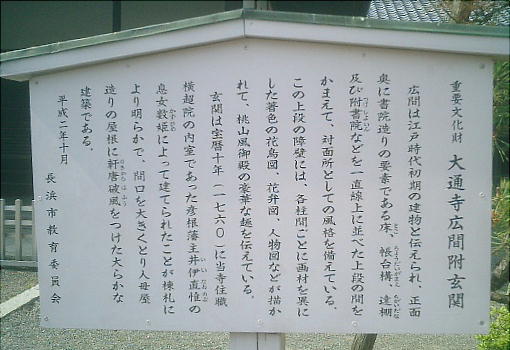 重要文化財　大通寺広間附玄関
広間は江戸時代初期の建物と伝えられ、正面
奥に書院造りの要素である床、帳台構、違棚
及び附書院などを一直線上に並べた上段の間を
かまえて、対面所としての風格を備えている。
この上段の障壁には、各柱間ごとに画材を異に
した著色の花鳥図、花弁図、人物図などが描か
れて、桃山風御殿の豪華な趣を伝えている。
玄関は宝暦十年（一七六〇）に当寺住職
横超院の内室であった彦根藩主井伊直惟の
息女数姫によって建てられたことが棟札に
より明らかで、間口を大きくとり入母屋
造りの屋根に軒唐破風をつけた大らかな
建築である。
平成二年十月
長浜市教育委員会